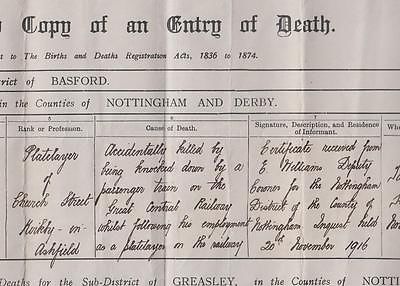 Copy of an Entry of Death.
to The Births and Deaths Registration Acts, 1836 to 1874.
District of BASFORD.
in the Counties of NOTTINGHAM AND DERBY.
5 6 7
Rank or Profession. Cause of Death. Signature, Description, and Residence of Informant. Whe
Platelayer
of
Church Street
Kirkby-in-
Ashfield
Accidentally killed by
being knocked down by a
passenger train on the
Great Central Railway
whilst following his employment
as a platelayer on the railway
Certificate received from
E. Williams Deputy
Coroner for the Nottingham
District of the County of
Nottingham Inquest held
20th November 1916
Deaths for the Sub-District of GREASLEY, in the Counties of NOTT